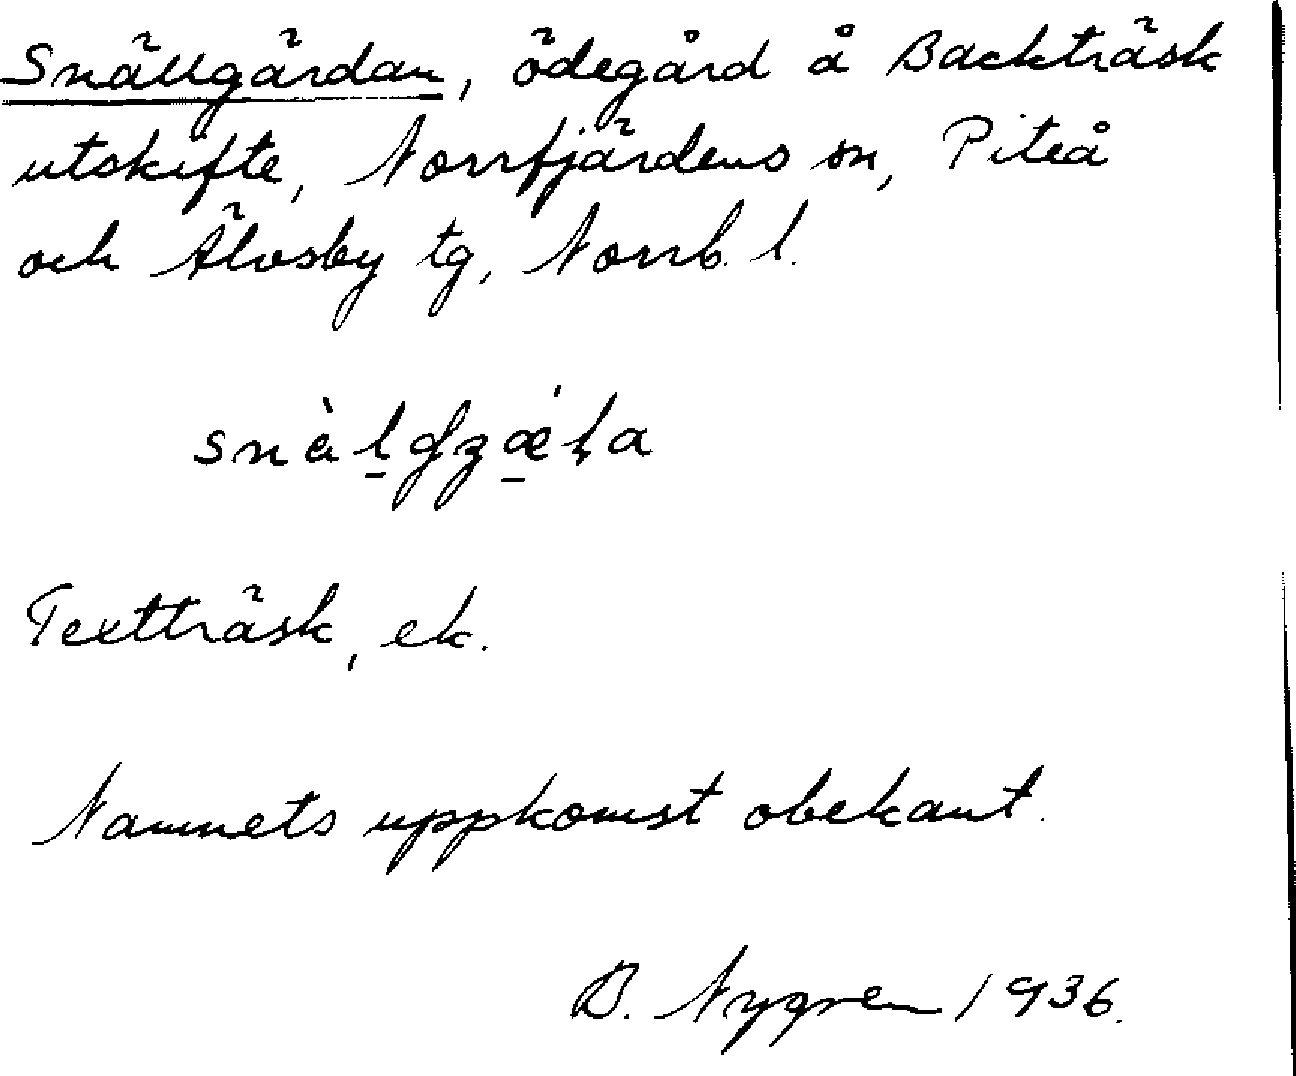 Snällgärdan, ödegård å Backträsk
utskifte, Norrfjärdens sn, Piteå
och Älvsby tg, Norrb. l.
Teetträsk, ek.
Namnets uppkomst obekant.
B. Nygren 1936.